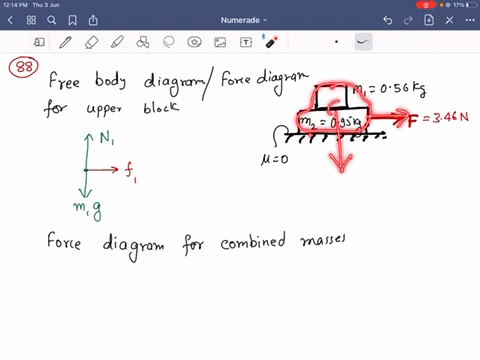 12:14 PM Thu 3 Jun
17%
Numerade
88
Free body diagram/Force diagram
for upper block
m₁ = 0.56 kg
m₂ = 0.95 kg
F = 3.46 N
μ=0
N₁
f₁
m₁g
Force diagram for combined masses